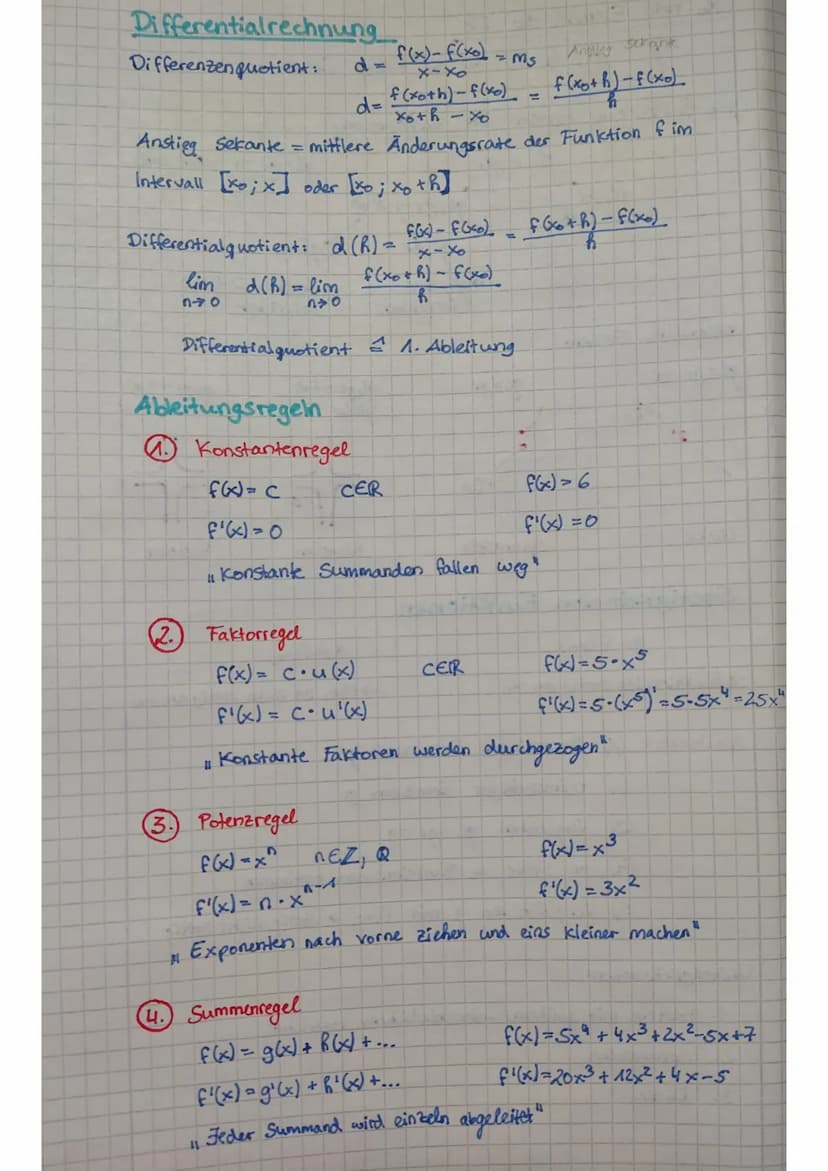 Differentialrechnung
Differenzenquotient: d = (f(x) - f(x₀))/(x - x₀) = mₛ Anstieg Sekante
d = (f(x₀+h) - f(x₀))/(x₀+h - x₀) = (f(x₀+h) - f(x₀))/h
Anstieg Sekante = mittlere Änderungsrate der Funktion f im
Intervall [x₀; x] oder [x₀; x₀+h]
Differentialquotient: d(h) = (f(x) - f(x₀))/(x - x₀) = (f(x₀+h) - f(x₀))/h
lim n→0 d(h) = lim n→0 (f(x₀+h) - f(x₀))/h
Differentialquotient ≙ 1. Ableitung
Ableitungsregeln
1. Konstantenregel :
f(x) = c c∈R f(x) = 6
f'(x) = 0 f'(x) = 0
„Konstante Summanden fallen weg"
2. Faktorregel
f(x) = c · u(x) c∈R f(x) = 5 · x⁵
f'(x) = c · u'(x) f'(x) = 5 · (x⁵)' = 5 · 5x⁴ = 25x⁴
„Konstante Faktoren werden durchgezogen"
3. Potenzregel
f(x) = xⁿ n∈Z, Q f(x) = x³
f'(x) = n · xⁿ⁻¹ f'(x) = 3x²
„Exponenten nach vorne ziehen und eins kleiner machen"
4. Summenregel
f(x) = g(x) + h(x) + ... f(x) = 5x⁴ + 4x³ + 2x² - 5x + 7
f'(x) = g'(x) + h'(x) + ... f'(x) = 20x³ + 12x² + 4x - 5
„Jeder Summand wird einzeln abgeleitet"